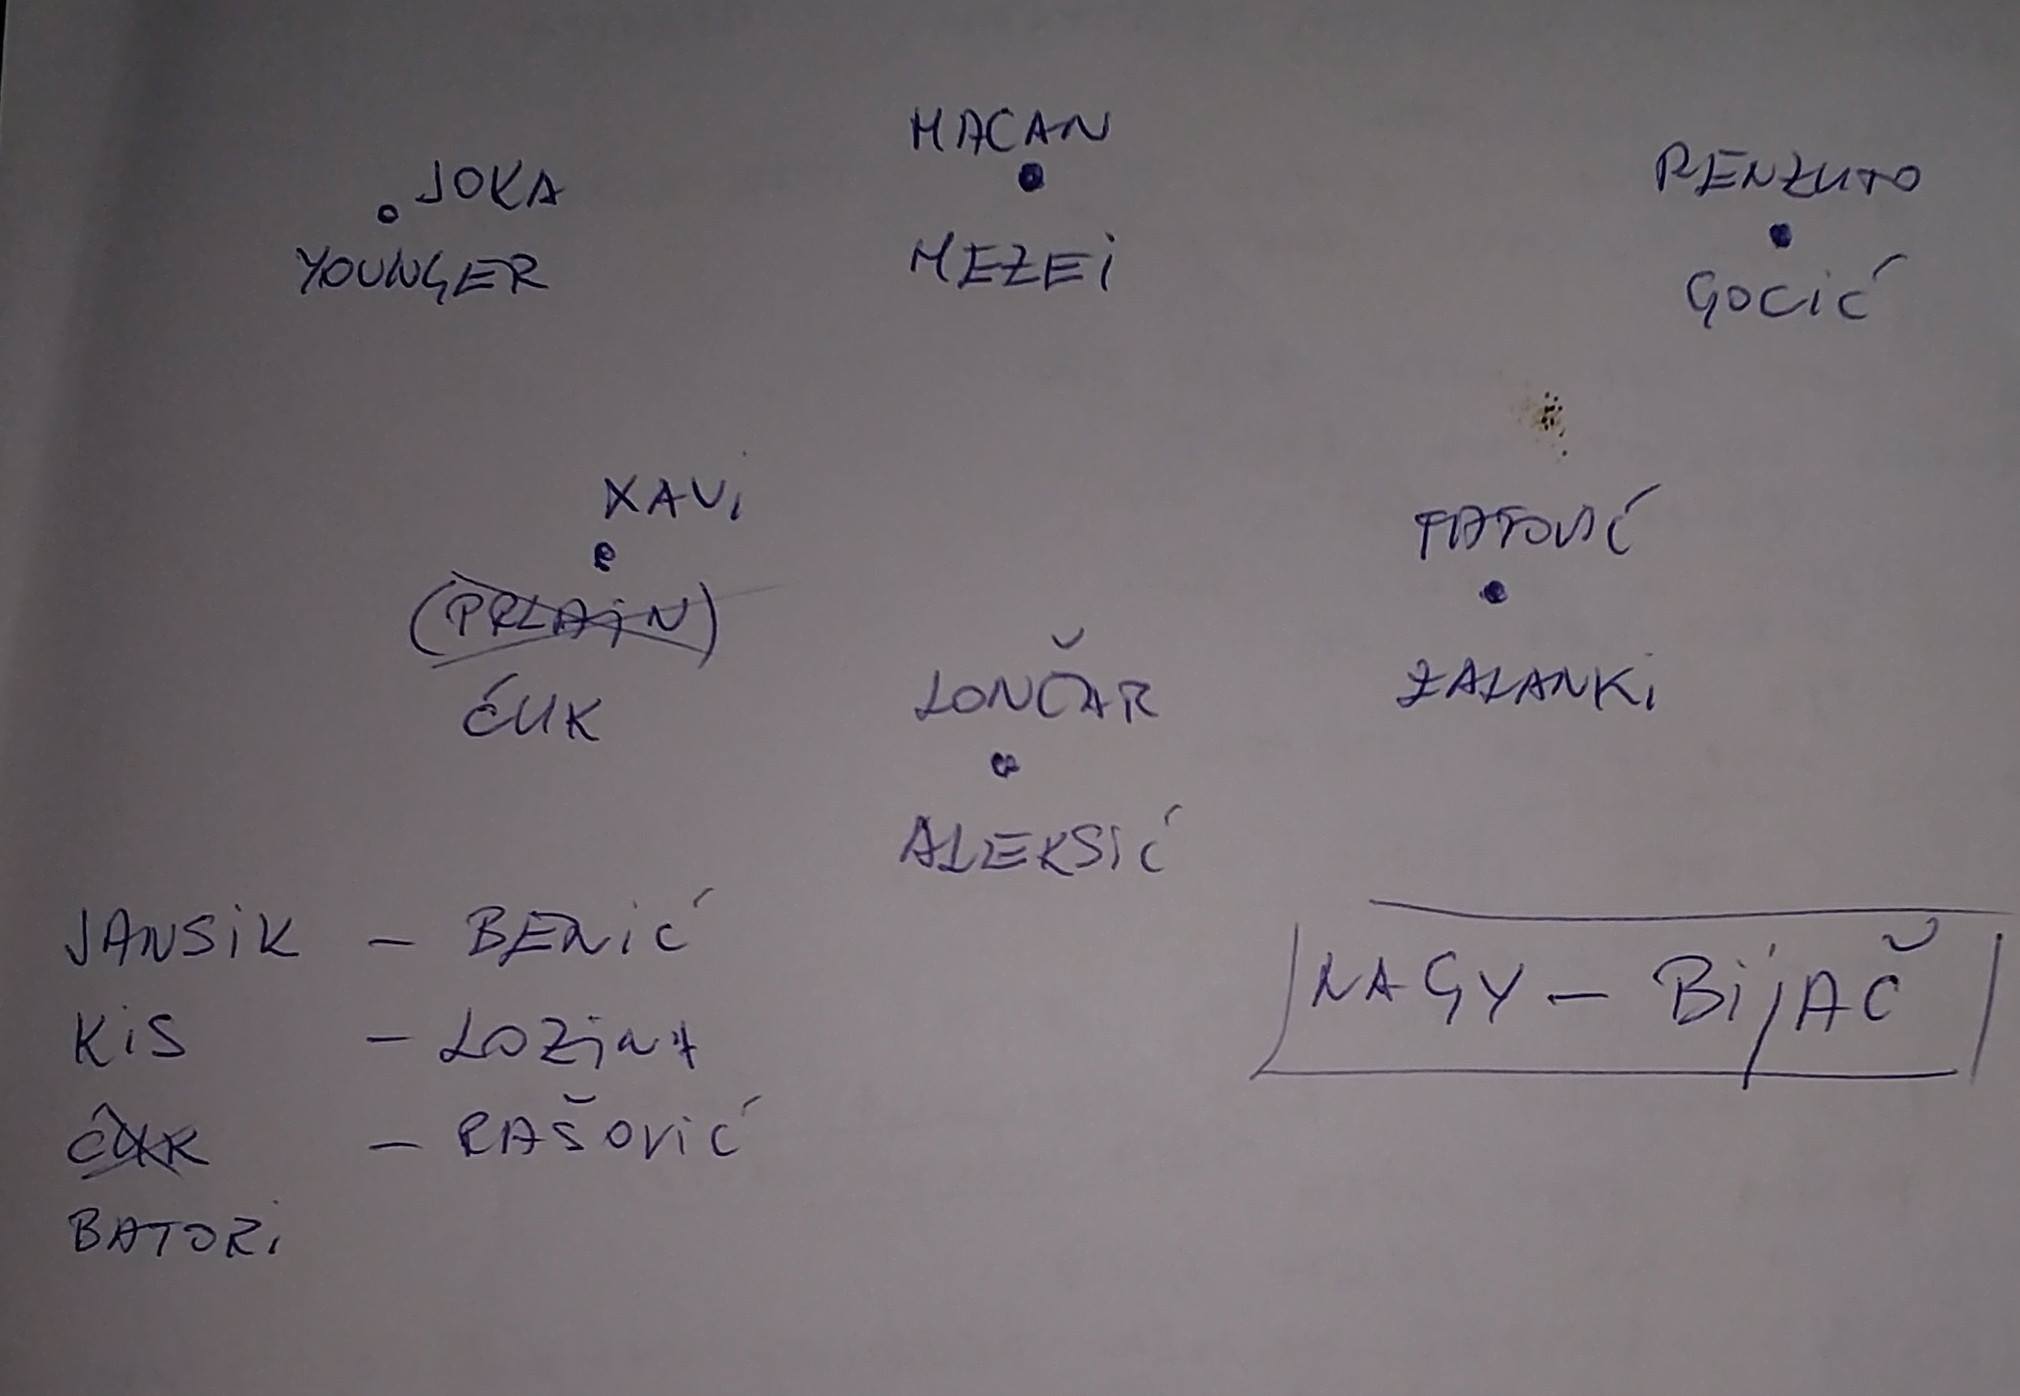 MACAN
JOKA
RENZUTO
YOUNGER
MEZEI
GOCIĆ
XAVI
TATOVIĆ
(PRLAIN)
ĆUK
LONČAR
ZALANKI
ALEKSIĆ
JANSIK – BENIĆ
NAGY – BIJAČ
KIS – LOZINA
ĆUK – RAŠOVIĆ
BATORI